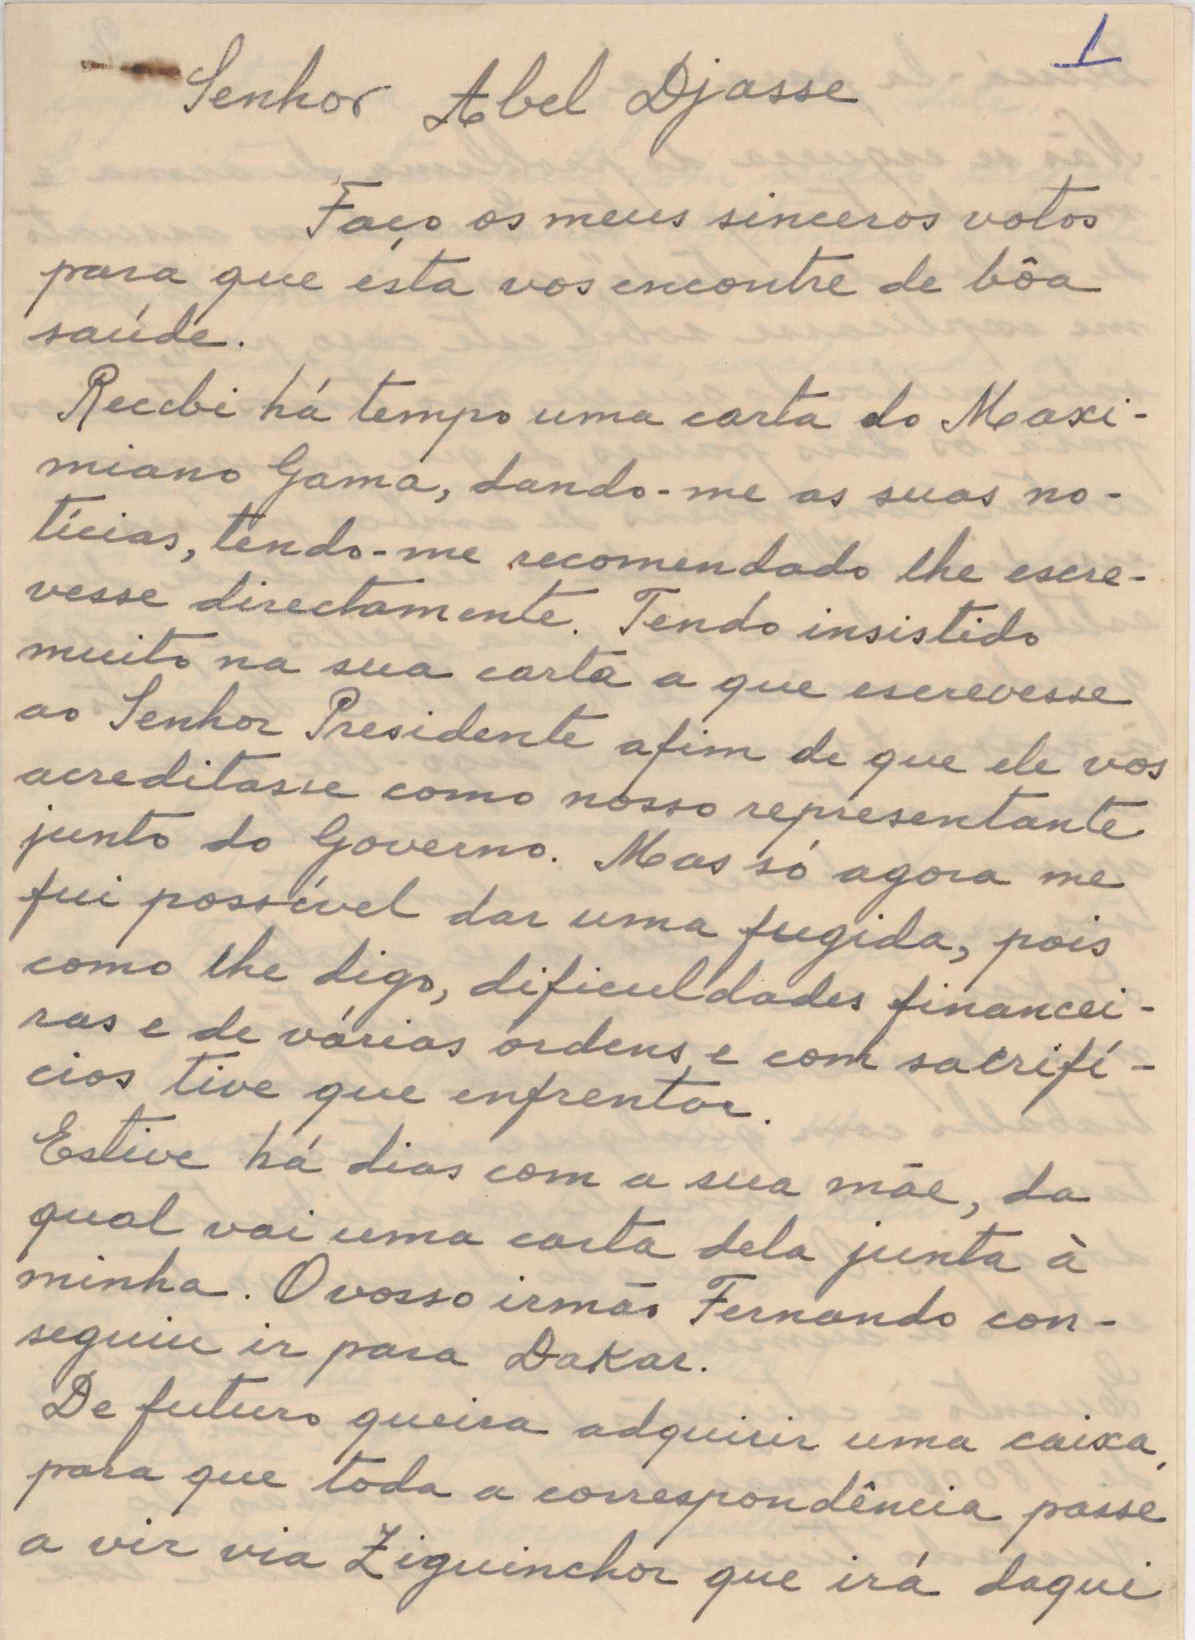 1
Senhor Abel Djasse
Faço os meus sinceros votos
para que ésta vos encontre de bôa
saúde.
Recebi há tempo uma carta do Maxi-
miano Gama, dando-me as suas no-
tícias, tendo-me recomendado lhe escre-
vesse directamente. Tendo insistido
muito na sua carta a que escrevesse
ao Senhor Presidente afim de que ele vos
acreditasse como nosso representante
junto do Governo. Mas só agora me
fui possível dar uma fugida, pois
como lhe digo, dificuldades financei-
ras e de várias ordens, e com sacrifí-
cios tive que enfrentar.
Estive há dias com a sua mãe, da
qual vai uma carta dela junta à
minha. O vosso irmão Fernando con-
seguiu ir para Dakar.
De futuro queira adquirir uma caixa,
para que toda a correspondência passe
a vir via Ziguinchor que irá daqui